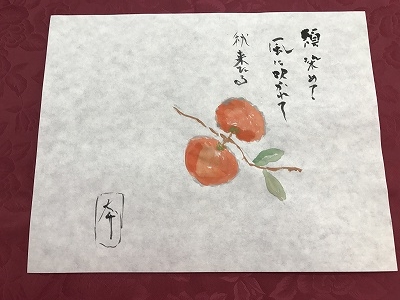 頬染めて
風に吹かれて
秋来たる